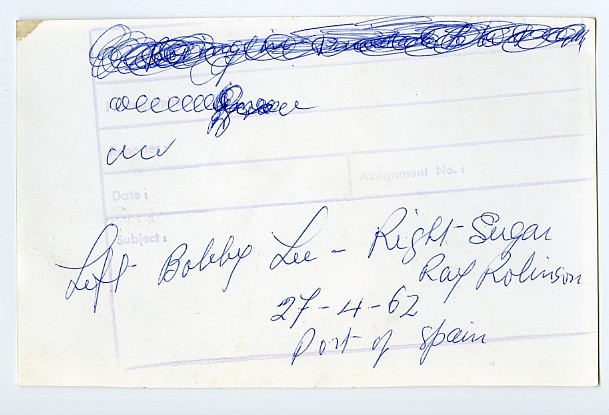 Date :
Assignment No. :
Subject :
Left Bobby Lee - Right Sugar
Ray Robinson
27-4-62
Port of Spain